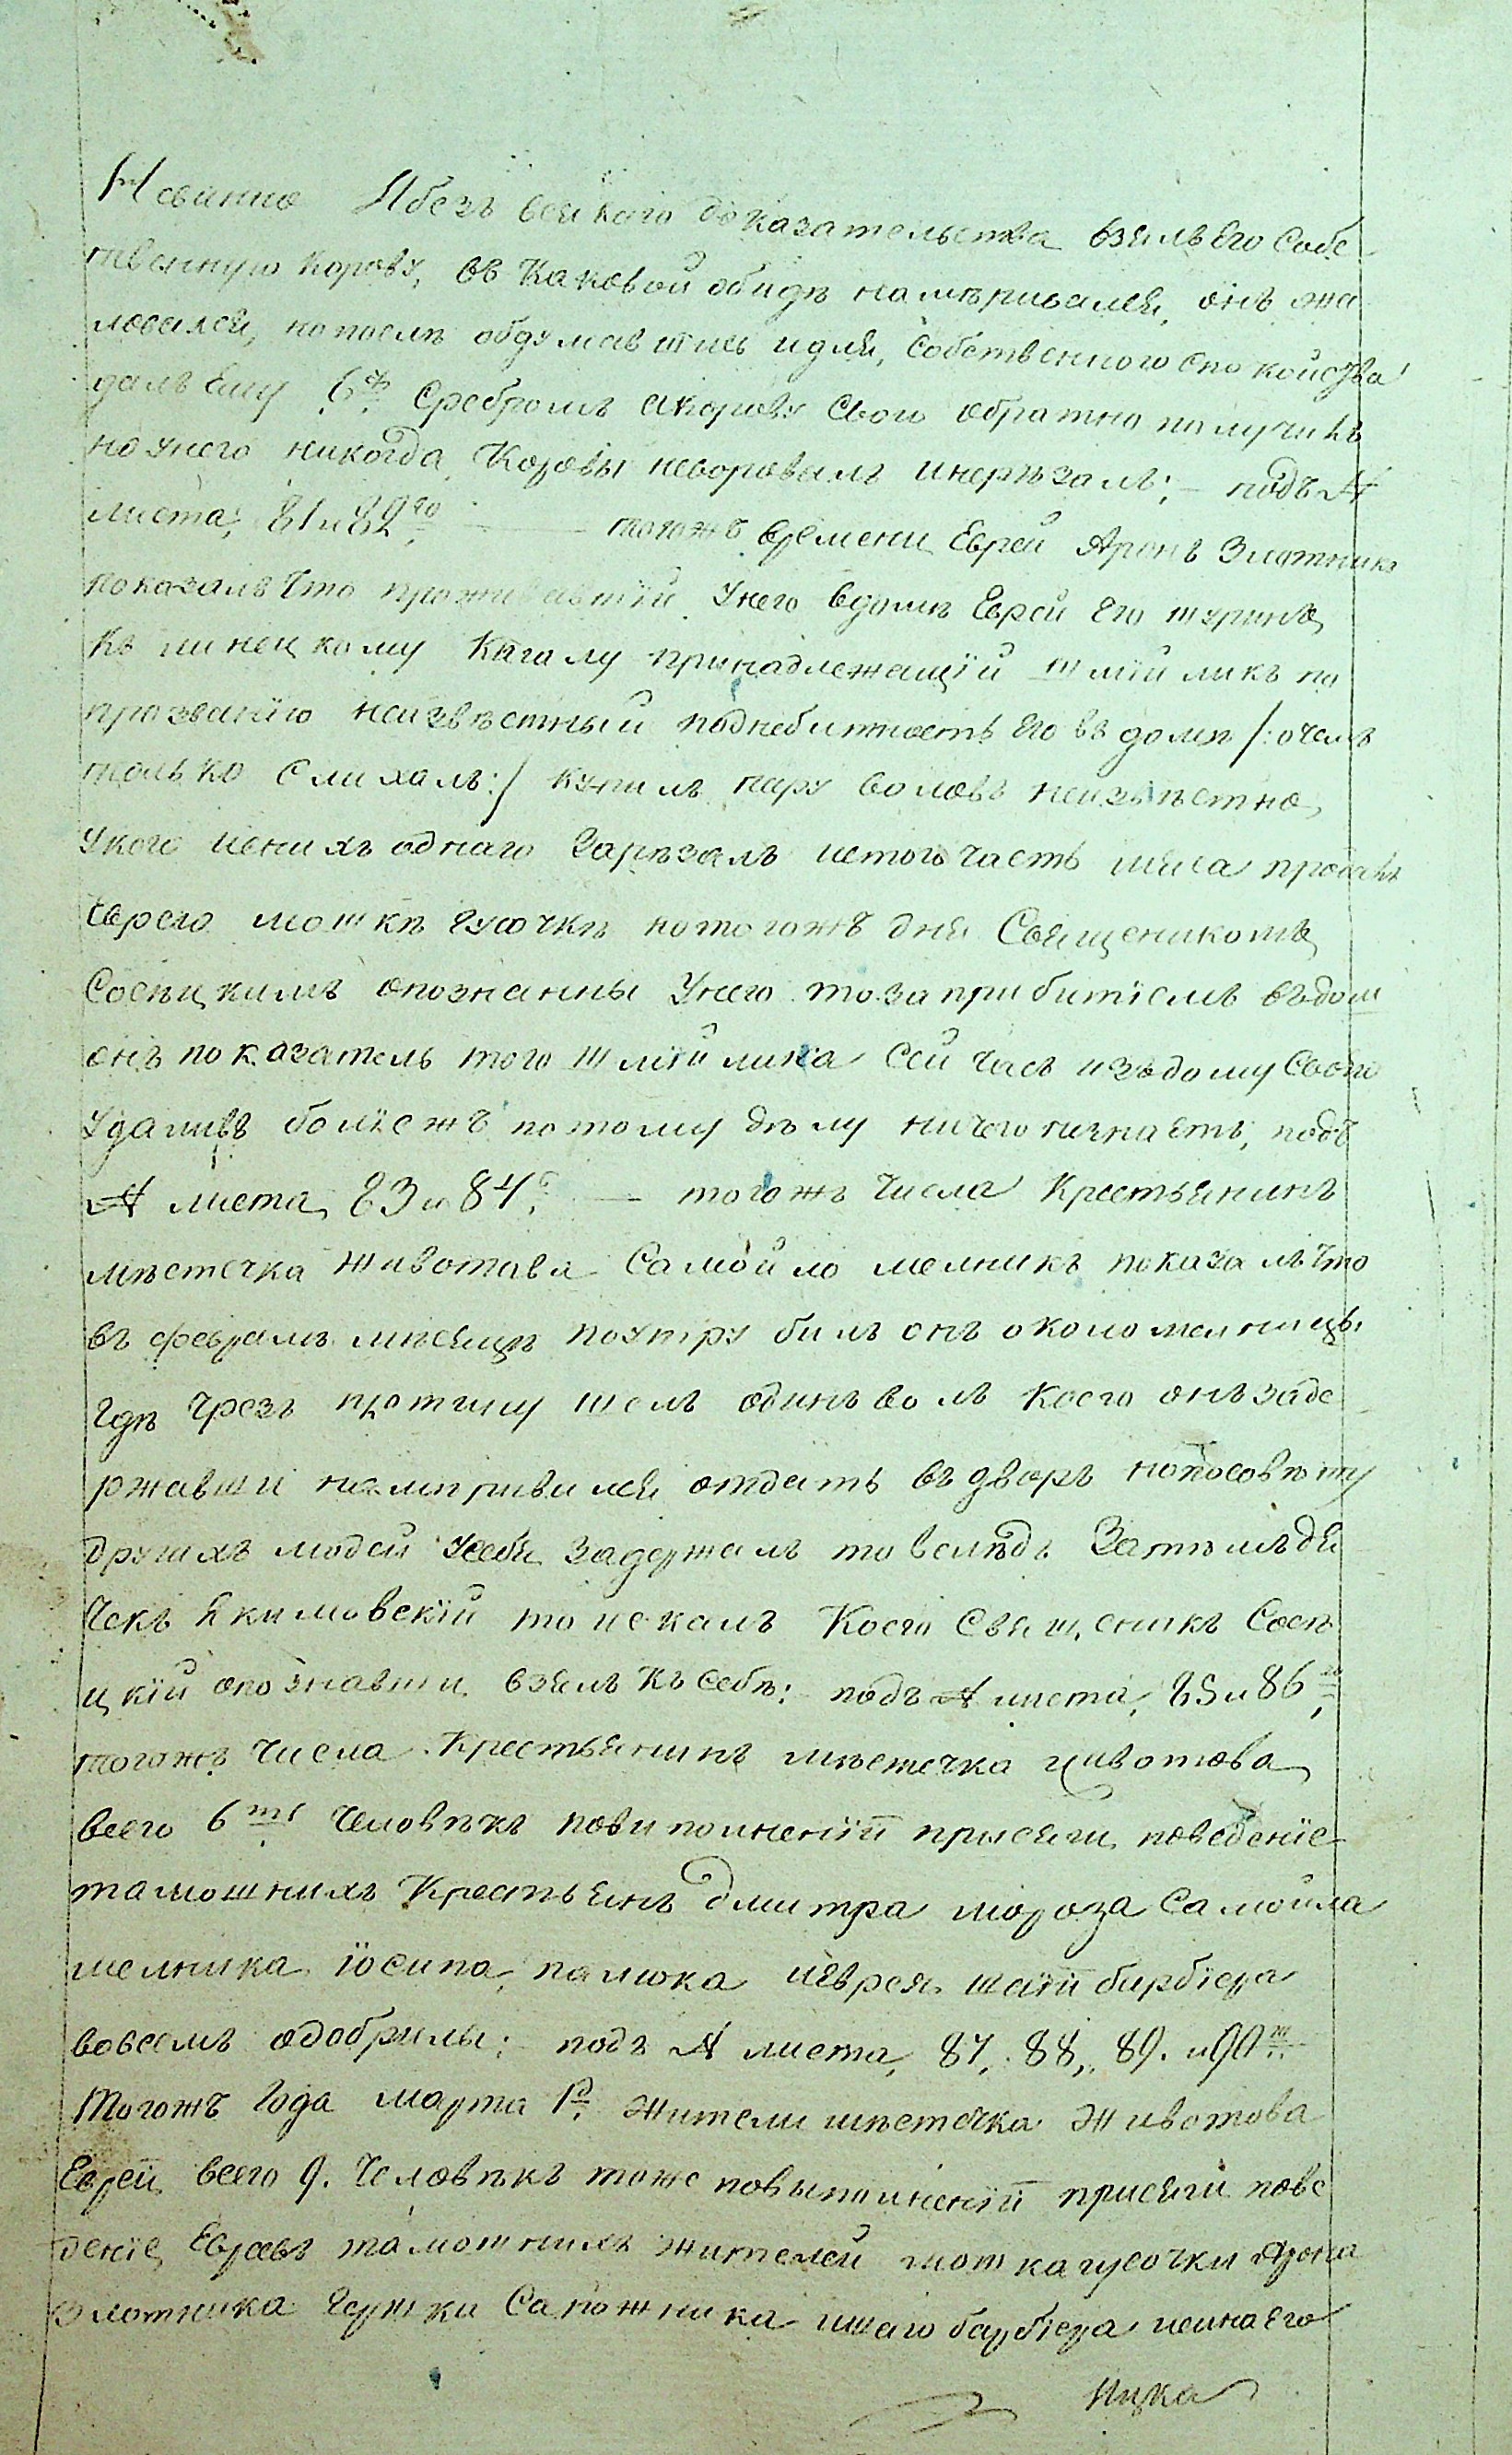 Невинно Ибезъ всякаго доказательства взялъ Его Собс
твенную корову, въ каковой обидѣ намѣривался, онъ жа
ловался, но послѣ обдумавшись идля, собственного спокойства
далъ Ему 6 ср Сребромъ акорову Свою обратно получилъ
но унего никогда коровы неворовалъ инерѣзалъ; – подъ №
листа, 81 и 82го — тогожъ времени Еврей Аронъ Злотникъ
показалъ что проживавшїй Унего вдомѣ Еврей Его шуринъ,
къ кагалу принадлежащїй Шмїйликъ по
прозванїю неизвѣстный поднебитность Его въ домѣ /: очемъ
только слихалъ :/ купилъ пару воловъ неизвѣстно,
укого изнихъ однаго Зарѣзалъ истого часть мяса продалъ
Еврею мошкѣ гусочкѣ но тогожъ дня Священикомъ,
Сосѣцкимъ опознанны Унего то запри битїемъ въдом
онъ показатель того Шмїйлика сей часъ изъдому Своего
удаливъ болѣежъ потому дѣлу ничего незнаетъ, подъ
№ листа, 83 и 84. — тогожъ числа Крестьянинъ
мѣстечка животова Самойло мелникъ показалъ что
въ февралѣ мѣсяцѣ поутру билъ онъ около мелницы
гдѣ чрезъ протину шелъ одинъ волъ коего онъ заде
ржавши намѣривался отдать въ дворъ нопосовѣту
другихъ людей усебя задержалъ то вслѣдъ Затѣмъ дя
чекъ Якимовскїй то искалъ Коего Священикъ Сосѣ
цкїй опознавши взялъ къ себѣ; подъ № листа, 85 и 86
тогожъ числа Крестьянинъ мѣстечка животова
всего 6ть человѣкъ повиполненїи присяги поведенїе
тамошнихъ Крестьянъ Дмитра мороза Самойла
мелника їосипа, палюка иеврея шаїи барбїера
вовсемъ одобрилы; подъ № листа, 87, 88, 89. и 90м
Тогожъ года марта 1го жители мѣстечка животова
Еврей всего 9. человѣкъ тоже повыполненїи присяги пове
денїе Евреевъ тамошнихъ жителей мошка гусочки Арона
Злотника Гершки Сапожника шаго барбїера исина Его
Ицка